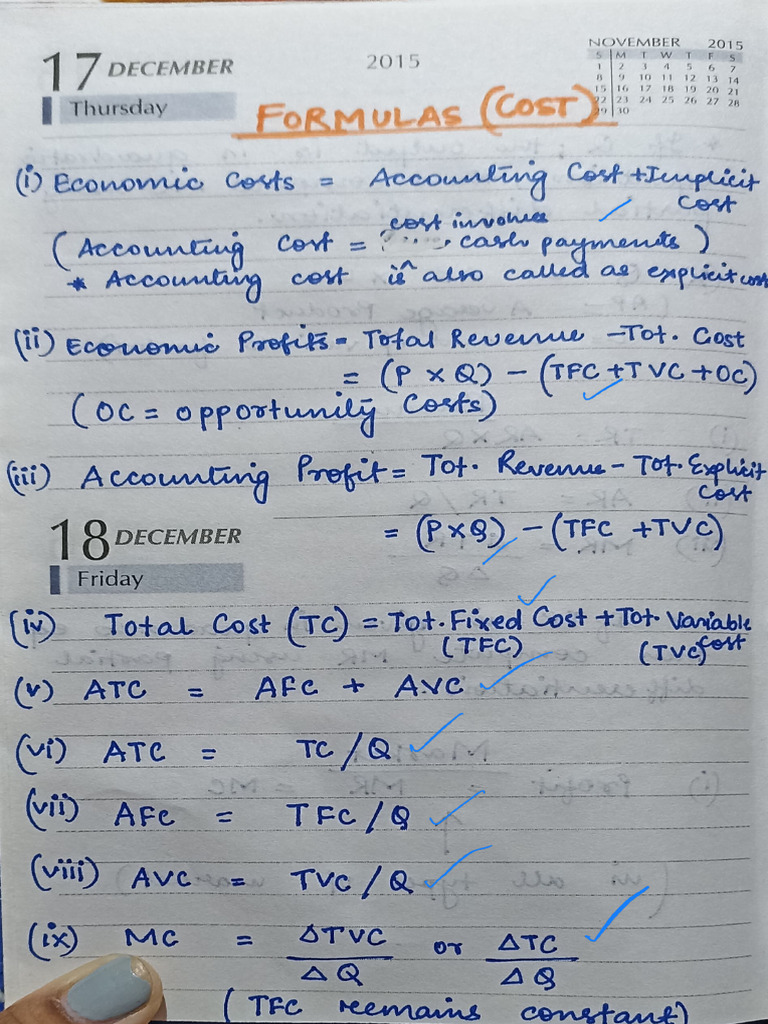 17 DECEMBER
Thursday
2015
NOVEMBER 2015
S M T W T F S
1 2 3 4 5 6 7
8 9 10 11 12 13 14
15 16 17 18 19 20 21
22 23 24 25 26 27 28
29 30
FORMULAS (COST)
(i) Economic Costs = Accounting Cost + Implicit
Cost
cost involves
(Accounting Cost = cash payments)
* Accounting cost is also called as explicit cost
(ii) Economic Profits = Total Revenue - Tot. Cost
= (P x Q) - (TFC + TVC + OC)
(OC = opportunity Costs)
(iii) Accounting Profit = Tot. Revenue - Tot. Explicit
Cost
= (P x Q) - (TFC + TVC)
18 DECEMBER
Friday
(iv) Total Cost (TC) = Tot. Fixed Cost + Tot. Variable
(TFC) (TVC) cost
(v) ATC = AFC + AVC
(vi) ATC = TC / Q
(vii) AFC = TFC / Q
(viii) AVC = TVC / Q
(ix) MC = ΔTVC or ΔTC
ΔQ ΔQ
(TFC reemains constant)